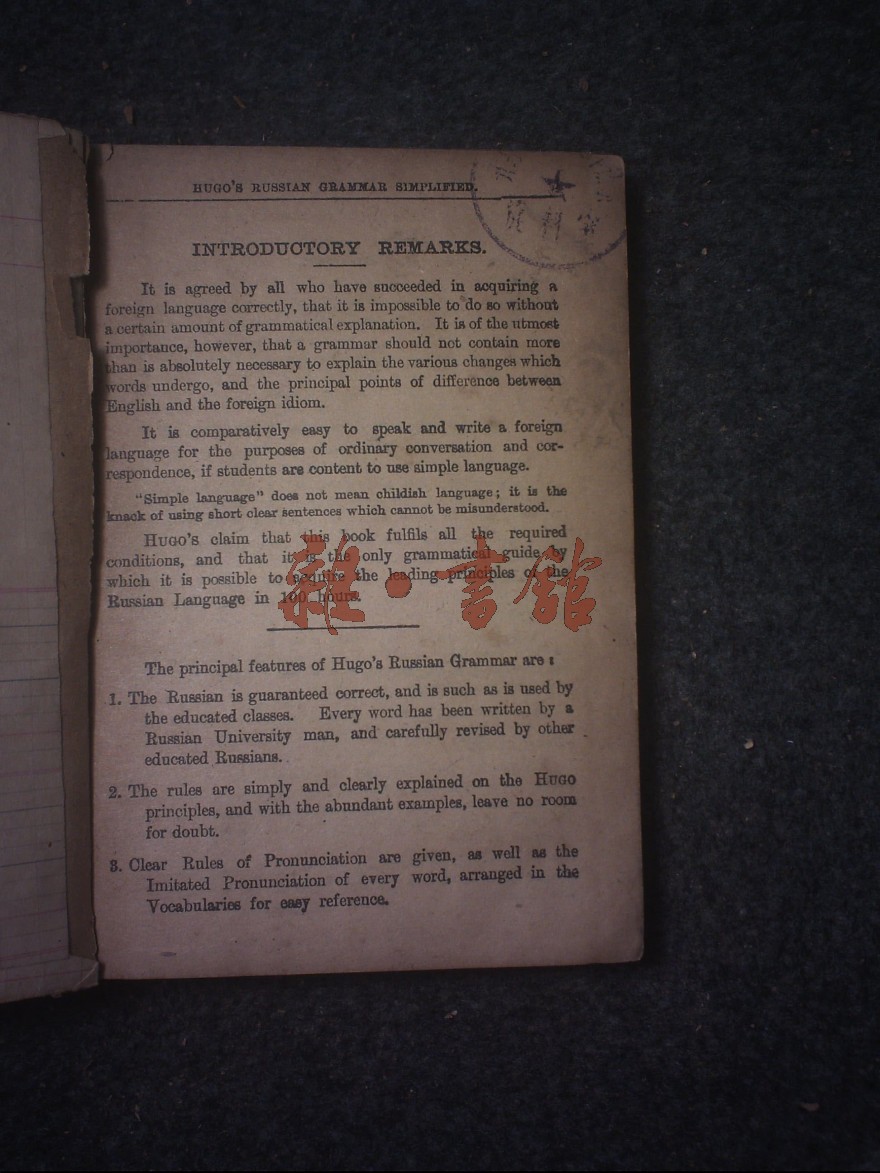 HUGO'S RUSSIAN GRAMMAR SIMPLIFIED.
INTRODUCTORY REMARKS.
It is agreed by all who have succeeded in acquiring a
foreign language correctly, that it is impossible to do so without
a certain amount of grammatical explanation. It is of the utmost
importance, however, that a grammar should not contain more
than is absolutely necessary to explain the various changes which
words undergo, and the principal points of difference between
English and the foreign idiom.
It is comparatively easy to speak and write a foreign
language for the purposes of ordinary conversation and cor-
respondence, if students are content to use simple language.
"Simple language" does not mean childish language; it is the
knack of using short clear sentences which cannot be misunderstood.
HUGO'S claim that this book fulfils all the required
conditions, and that it is the only grammatical guide by
which it is possible to acquire the leading principles of the
Russian Language in 100 hours.
雜·書館
The principal features of Hugo's Russian Grammar are:
1. The Russian is guaranteed correct, and is such as is used by
the educated classes. Every word has been written by a
Russian University man, and carefully revised by other
educated Russians.
2. The rules are simply and clearly explained on the HUGO
principles, and with the abundant examples, leave no room
for doubt.
3. Clear Rules of Pronunciation are given, as well as the
Imitated Pronunciation of every word, arranged in the
Vocabularies for easy reference.